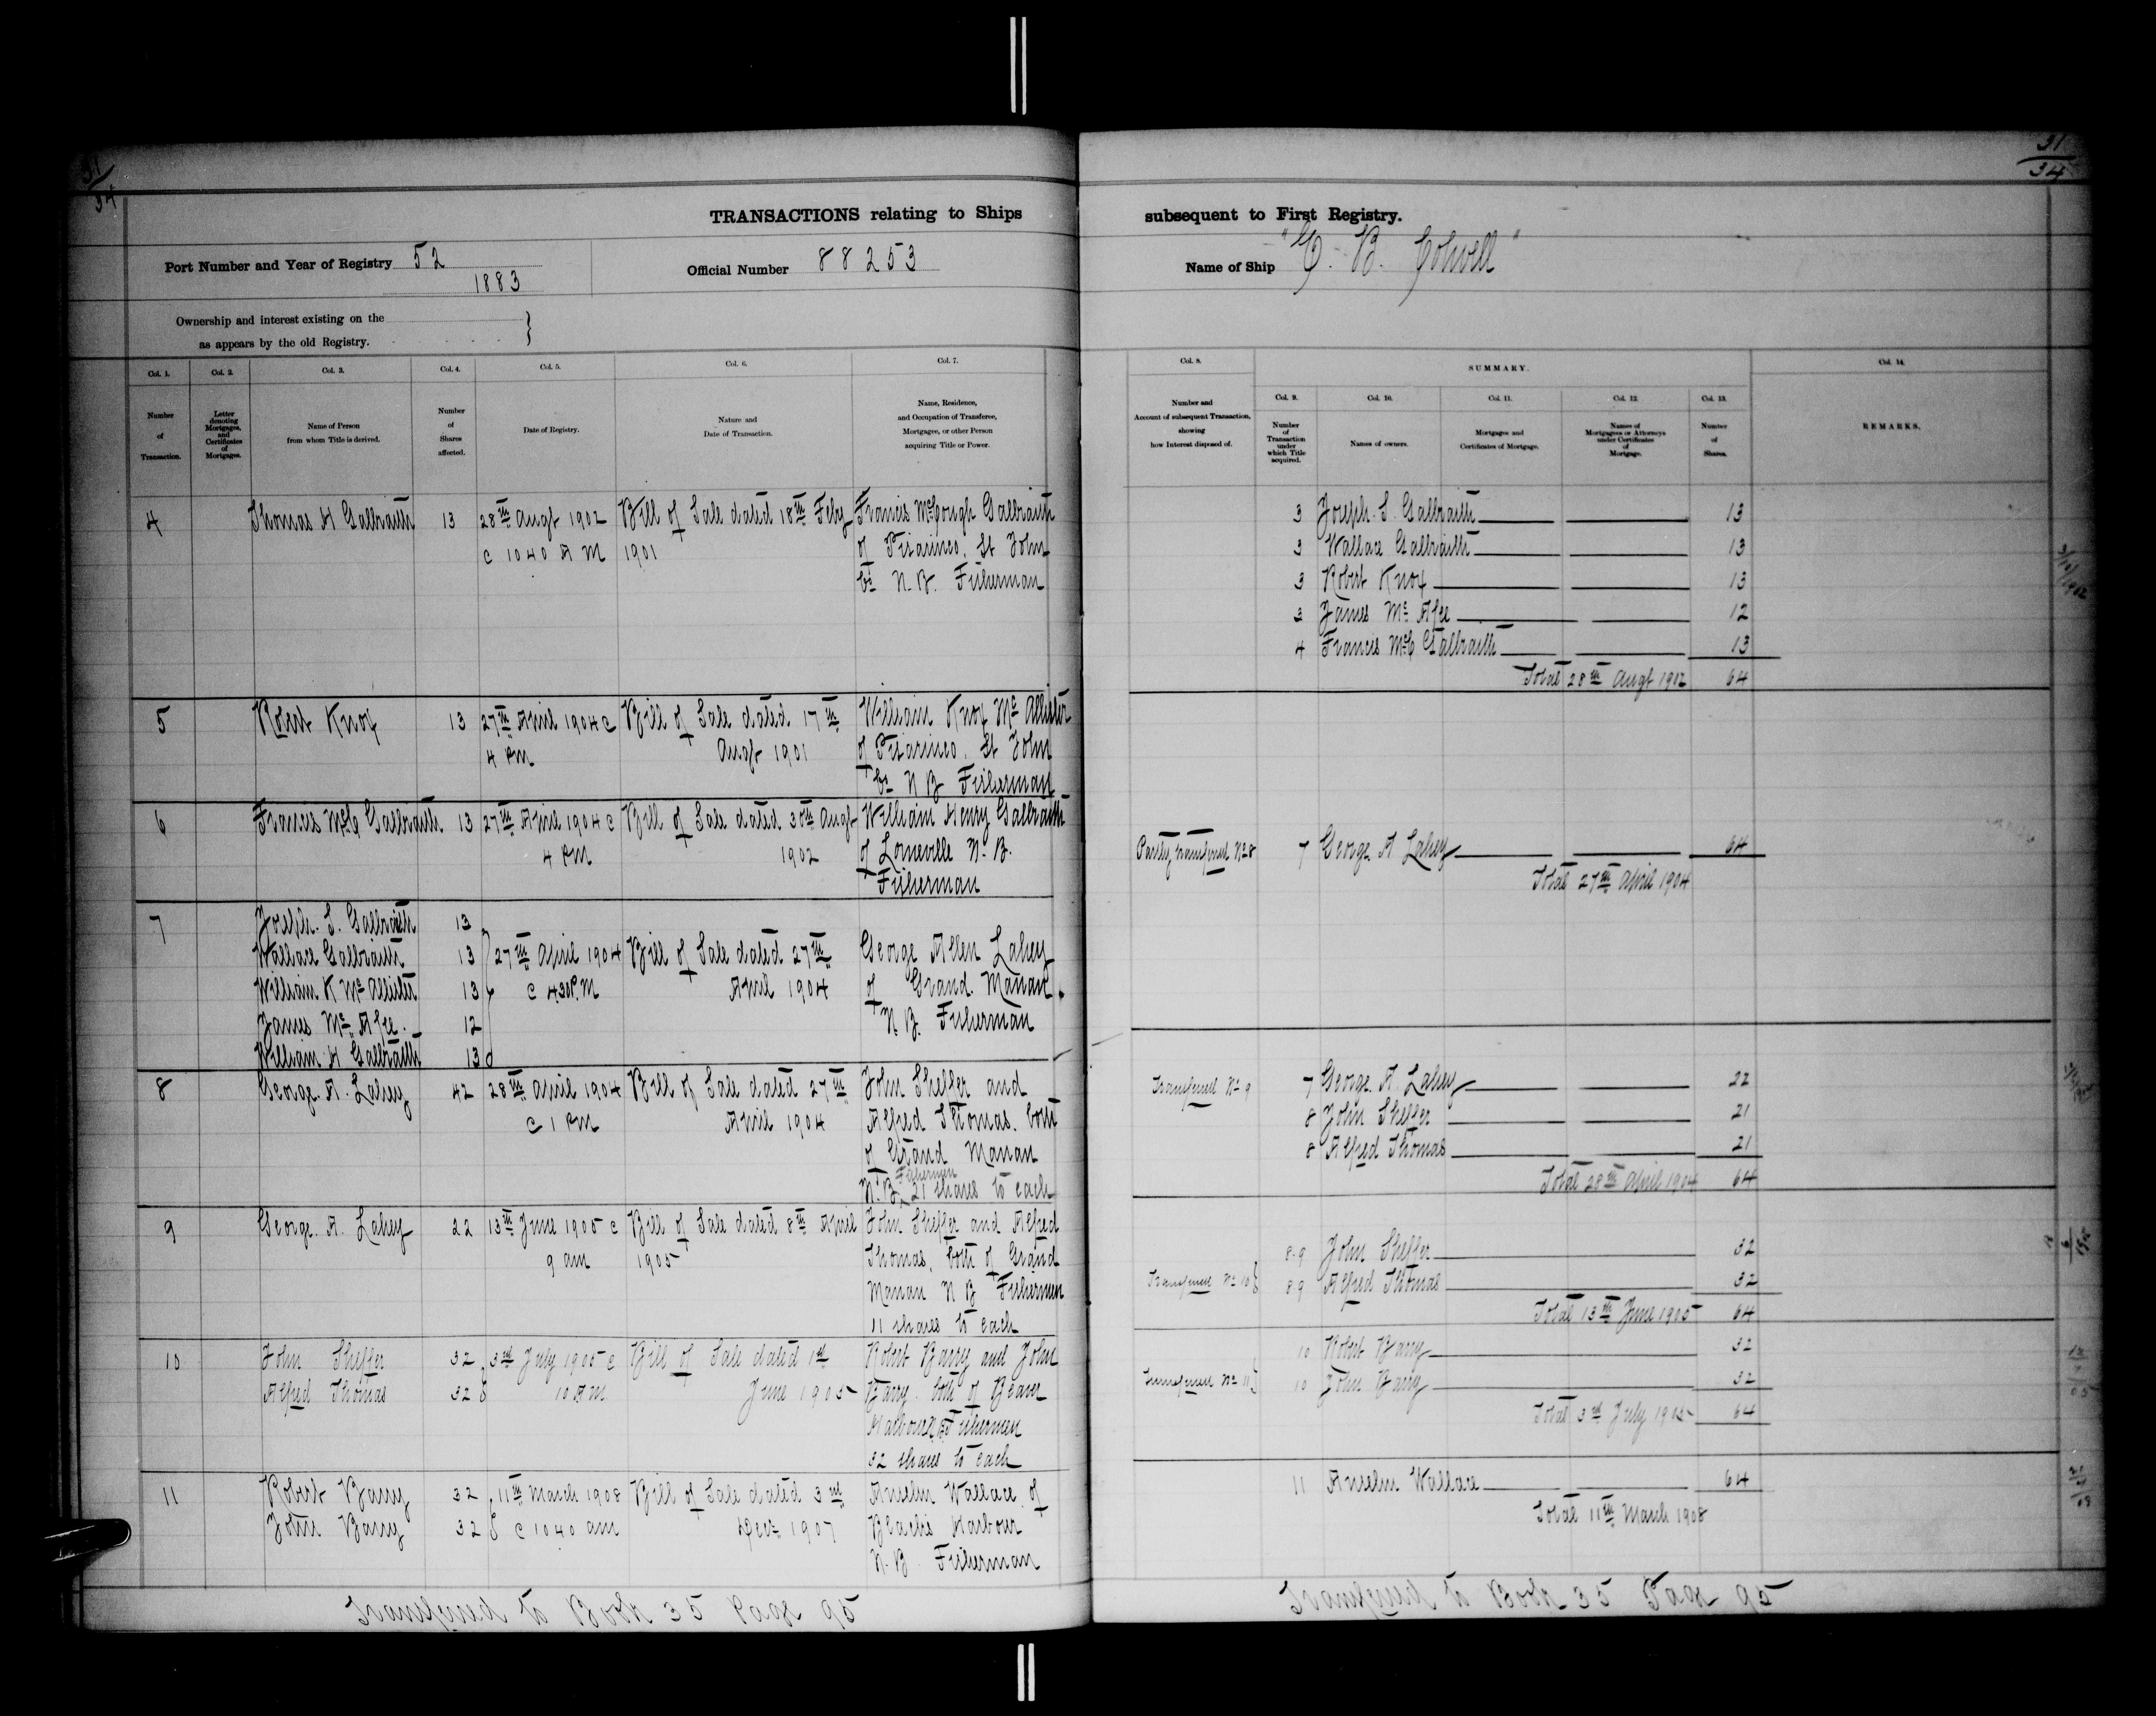 31
34
31
34
TRANSACTIONS relating to Ships
subsequent to First Registry.
Port Number and Year of Registry 52
1883
Official Number 88253
Name of Ship "C. B. Colwell"
Ownership and interest existing on the
as appears by the old Registry.
Col. 1.
Number
of
Transaction.
Col. 2.
Letter
denoting
Mortgages,
and
Certificates
of
Mortgages.
Col. 3.
Name of Person
from whom Title is derived.
Col. 4.
Number
of
Shares
affected.
Col. 5.
Date of Registry.
Col. 6.
Nature and
Date of Transaction.
Col. 7.
Name, Residence,
and Occupation of Transferee,
Mortgagee, or other Person
acquiring Title or Power.
4 Thomas H Galbraith 13 28th Augt 1902 Bill of Sale dated 18th Feby Francis McGough Galbraith
@ 10 40 A M 1901 of Pisarinco, St John
Co N. B. Fisherman
5 Robert Knox 13 27th April 1904 @ Bill of Sale dated 17th William Knox Mc Allister
4 PM Augt 1901 of Pisarinco, St John
Co N B Fisherman
6 Francis McG Galbraith 13 27th April 1904 @ Bill of Sale dated 30th Augt William Henry Galbraith
4 PM 1902 of Lorneville N. B.
Fisherman
7 Joseph. S. Galbraith 13
Wallace Galbraith 13 27th April 1904 Bill of Sale dated 27th George Allen Lahey
William K Mc Allister 13 @ 4.30 P.M April 1904 of Grand Manan
James Mc Afee. 12 N. B. Fisherman
William H Galbraith 13
8 George. A. Lahey 42 28th April 1904 Bill of Sale dated 27th John Sheffer and
@ 1 PM April 1904 Alfred Thomas, both
of Grand Manan
Fishermen
N. B, 21 shares to each
9 George. A. Lahey 22 13th June 1905 @ Bill of Sale dated 8th April John Sheffer and Alfred
9 am 1905 Thomas, both of Grand
Manan N B Fishermen
11 shares to each
10 John Sheffer 32 3rd July 1905 @ Bill of Sale dated 1st Robert Barry and John
Alfred Thomas 32 10 A M June 1905 Barry. both of Beaver
Harbour N B Fishermen
32 shares to each
11 Robert Barry 32 11th March 1908 Bill of Sale dated 3rd Anselm Wallace of
John Barry 32 @ 10 40 am Decr 1907 Blacks Harbour
N. B. Fisherman
Transferred to Book 35 Page 95
Col. 8.
Number and
Account of subsequent Transaction,
showing
how Interest disposed of.
SUMMARY.
Col. 9.
Number
of
Transaction
under
which Title
acquired.
Col. 10.
Names of owners.
Col. 11.
Mortgages and
Certificates of Mortgage.
Col. 12.
Names of
Mortgagees or Attorneys
under Certificates
of
Mortgage.
Col. 13.
Number
of
Shares.
Col. 14.
REMARKS.
3 Joseph. S. Galbraith 13
3 Wallace Galbraith 13
3 Robert Knox 13
3 James Mc Afee 12
4 Francis McG Galbraith 13
Total 28th Augt 1902 64
Partly transferred No 8 7 George A Lahey 64
Total 27th April 1904
Transferred No 9 7 George. A. Lahey 22
8 John Sheffer 21
8 Alfred Thomas 21
Total 28th April 1904 64
8-9 John Sheffer 32
Transferred No 10 8 9 Alfred Thomas 32
Total 13th June 1905 64
10 Robert Barry 32
Transferred No 11 10 John Barry 32
Total 3rd July 1905 64
11 Anselm Wallace 64
Total 11th March 1908
Transferred to Book 35 Page 95